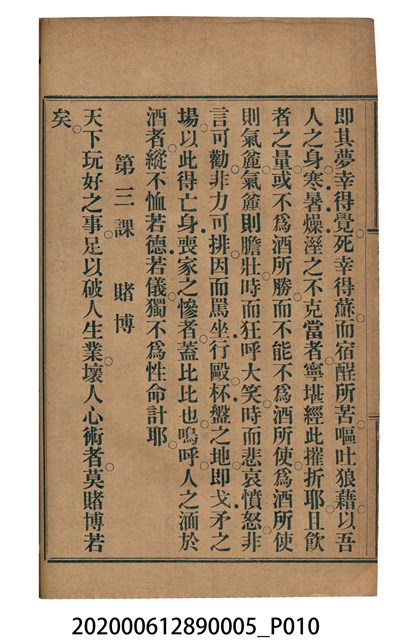 即其夢幸得覺死幸得蘇而宿酲所苦嘔吐狼藉以吾
人之身寒暑燥溼之不克當者寧堪經此摧折耶且飲
者之量或不爲酒所勝而不能不爲酒所使爲酒所使
則氣麄氣麄則膽壯時而狂呼大笑時而悲哀憤怒非
言可勸非力可排因而罵坐行毆杯盤之地即戈矛之
場以此得亡身喪家之慘者蓋比比也嗚呼人之湎於
酒者縱不恤若德若儀獨不爲性命計耶
第三課　賭博
天下玩好之事足以破人生業壞人心術者莫賭博若
矣
202000612890005_P010